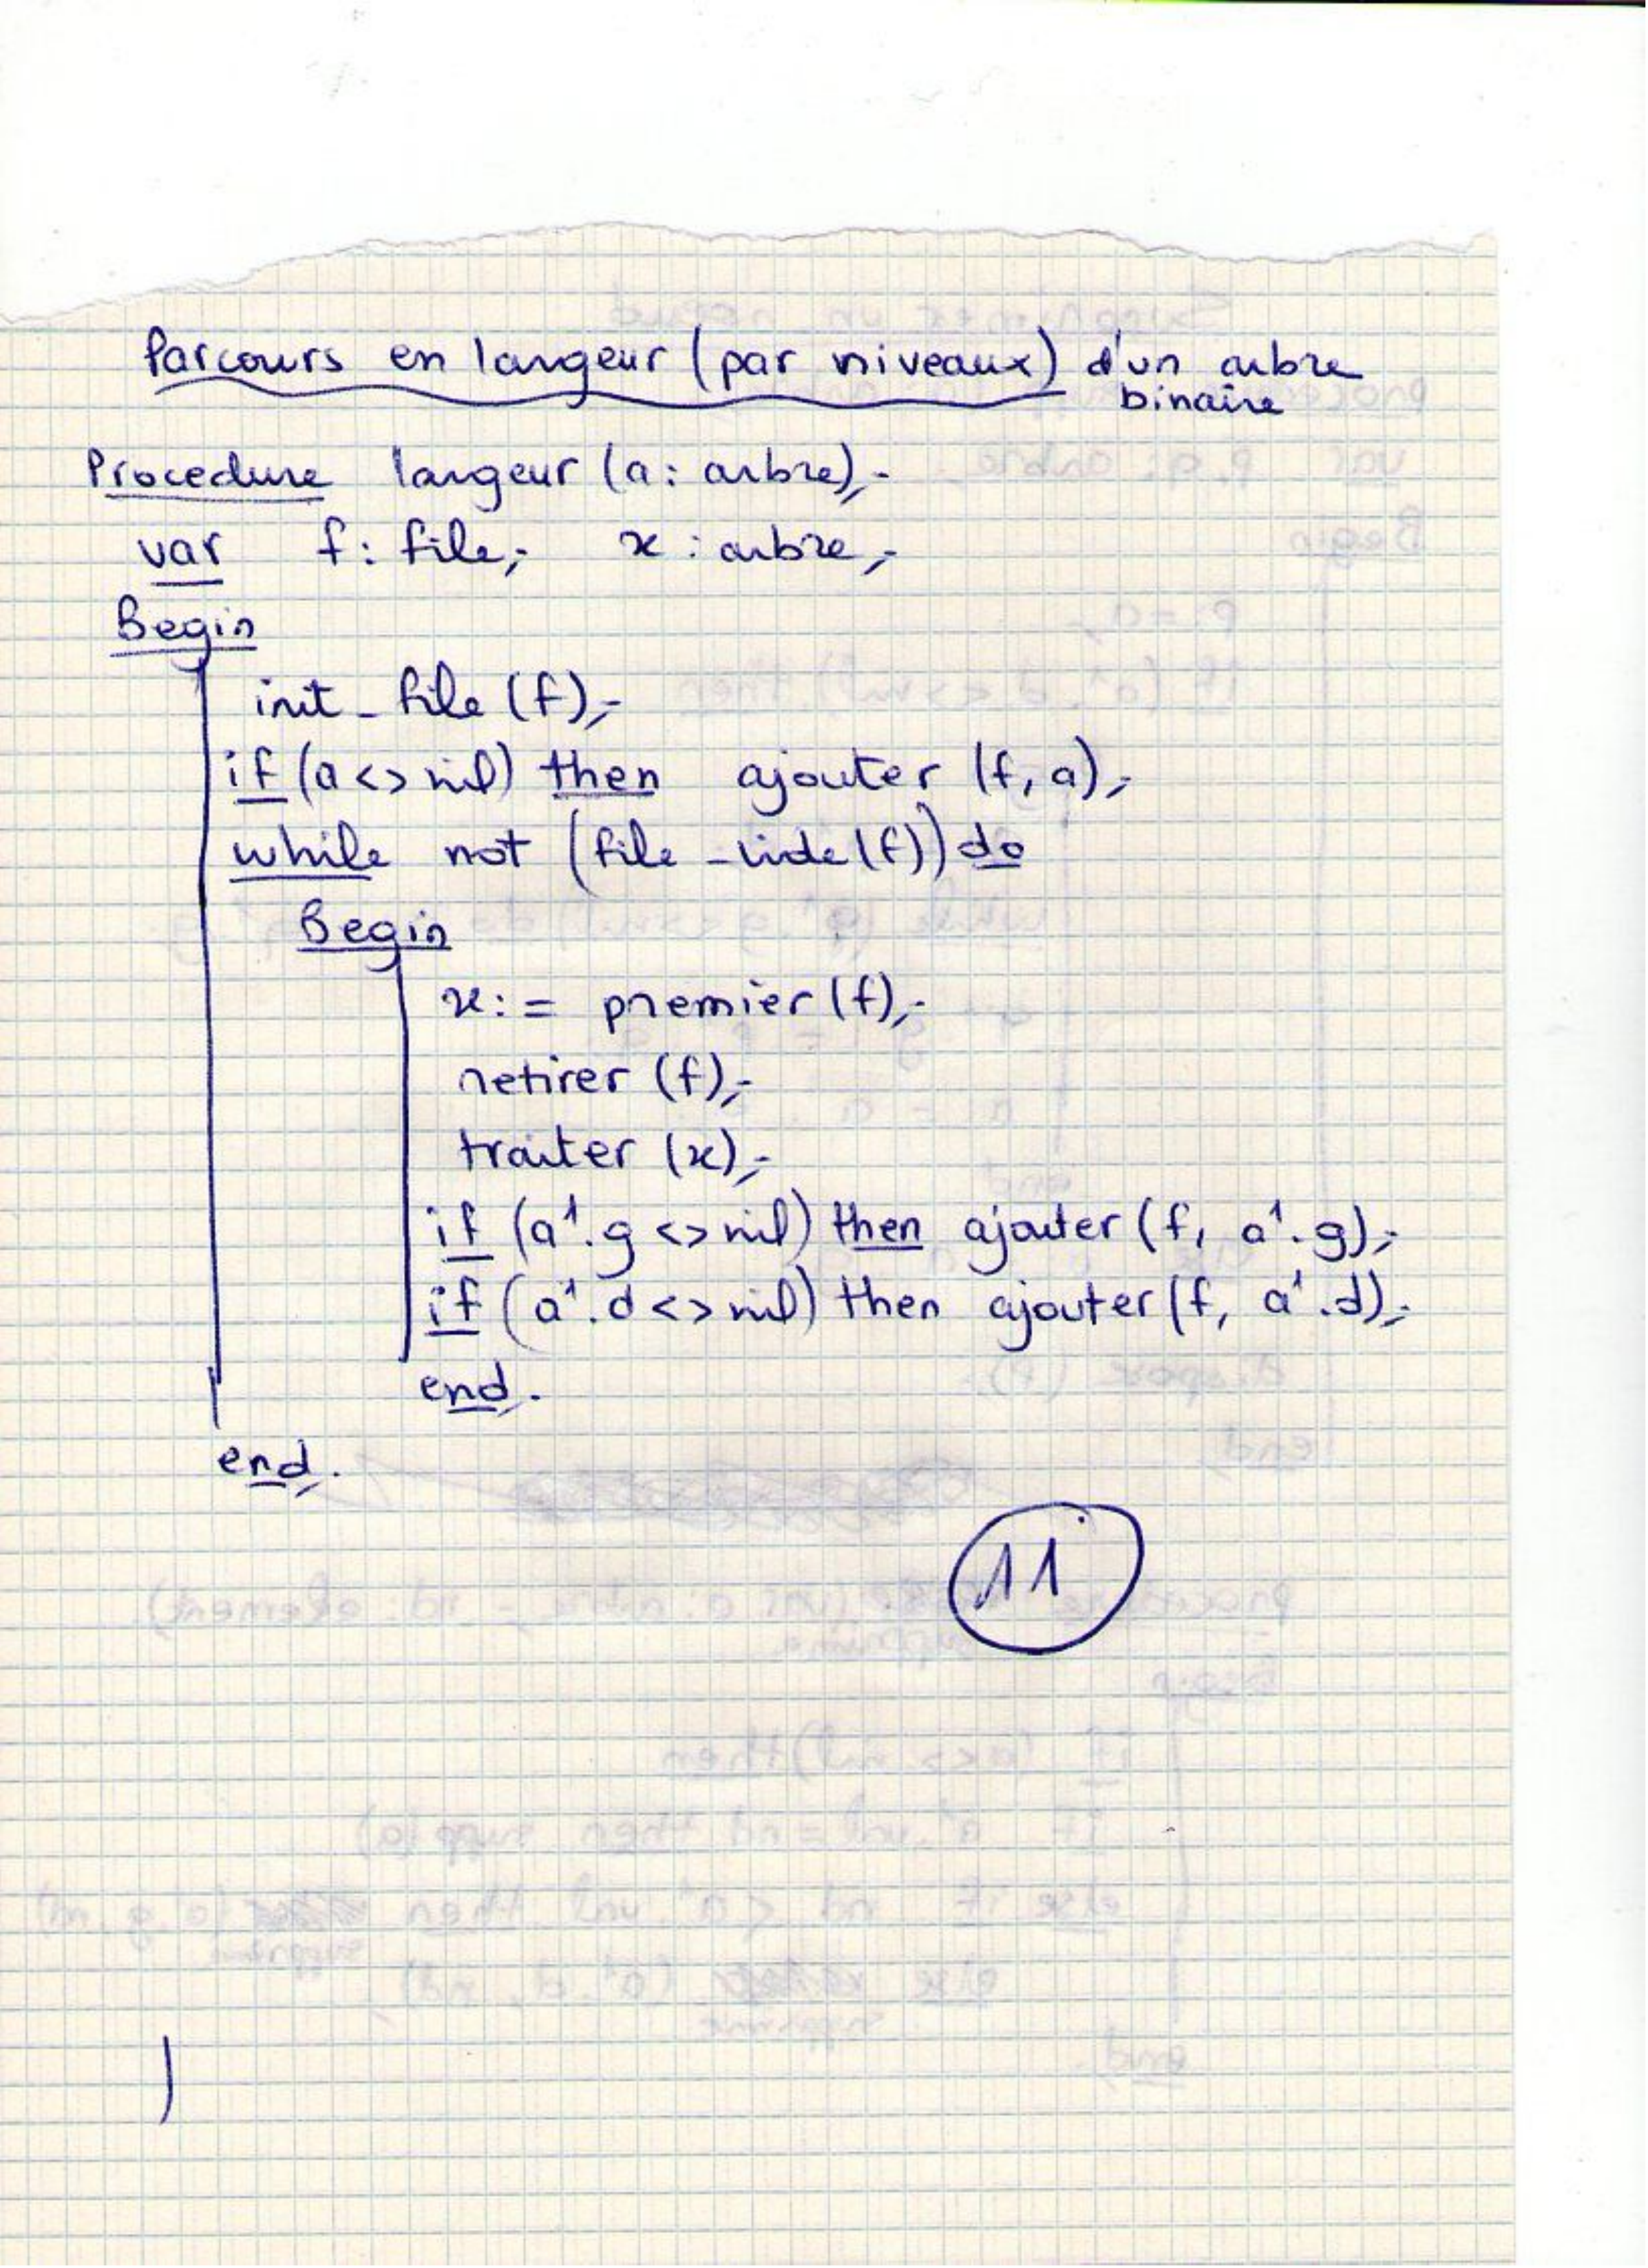 Parcours en largeur (par niveaux) d'un arbre
binaire
Procedure largeur (a : arbre);
var f : file; x : arbre;
Begin
init_file (f);
if (a <> nil) then ajouter (f, a);
while not (file_vide(f)) do
Begin
x := premier (f);
retirer (f);
traiter (x);
if (a↑.g <> nil) then ajouter (f, a↑.g);
if (a↑.d <> nil) then ajouter (f, a↑.d);
end.
end.
11